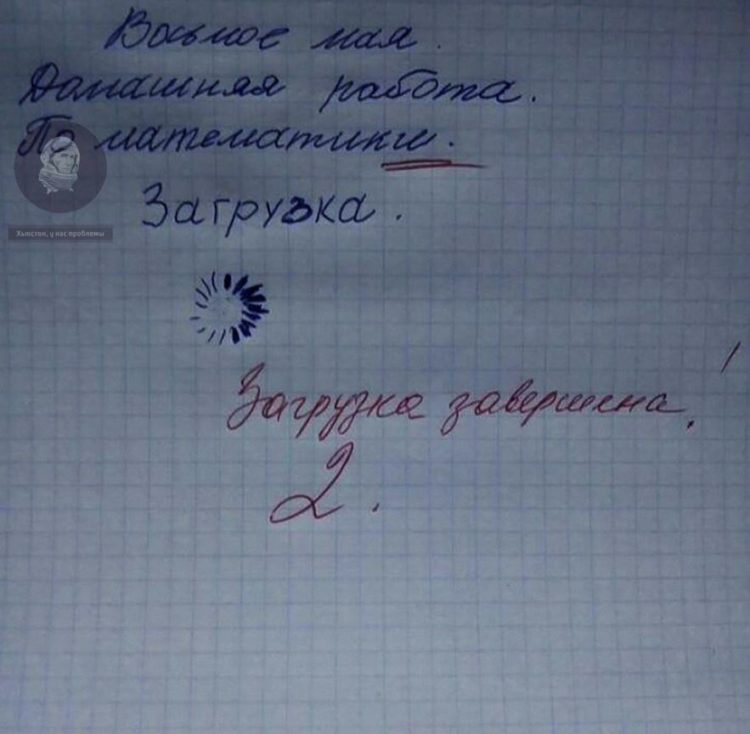 Восьмое мая.
Домашняя работа.
По математики.
Хьюстон, у нас проблемы
Загрузка.
Загрузка завершена!
2.